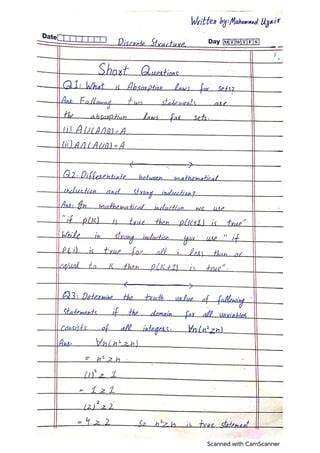 Written by: Muhammad Uzair
Date
Discrete Structure.
Day M T W T F S
1.
Short Questions
Q1: What is Absorption laws for sets?
Ans: Following two statements are
the absorption laws for sets.
(i) A∪(A∩B)=A
(ii) A∩(A∪B)=A
Q2: Differentiate between mathematical
induction and strong induction?
Ans: In mathematical induction we use
"if p(K) is true then p(K+1) is true"
While in strong induction you use "if
p(i) is true for all i less than or
equal to K then p(K+1) is true".
Q3: Determine the truth value of following
statements if the domain for all variables
consists of all integers. ∀n(n²≥n)
Ans: ∀n(n²≥n)
= n²≥n
(1)² ≥ 1
= 1 ≥ 1
(2)² ≥ 2
= 4 ≥ 2 So n²≥n is true statement
Scanned with CamScanner